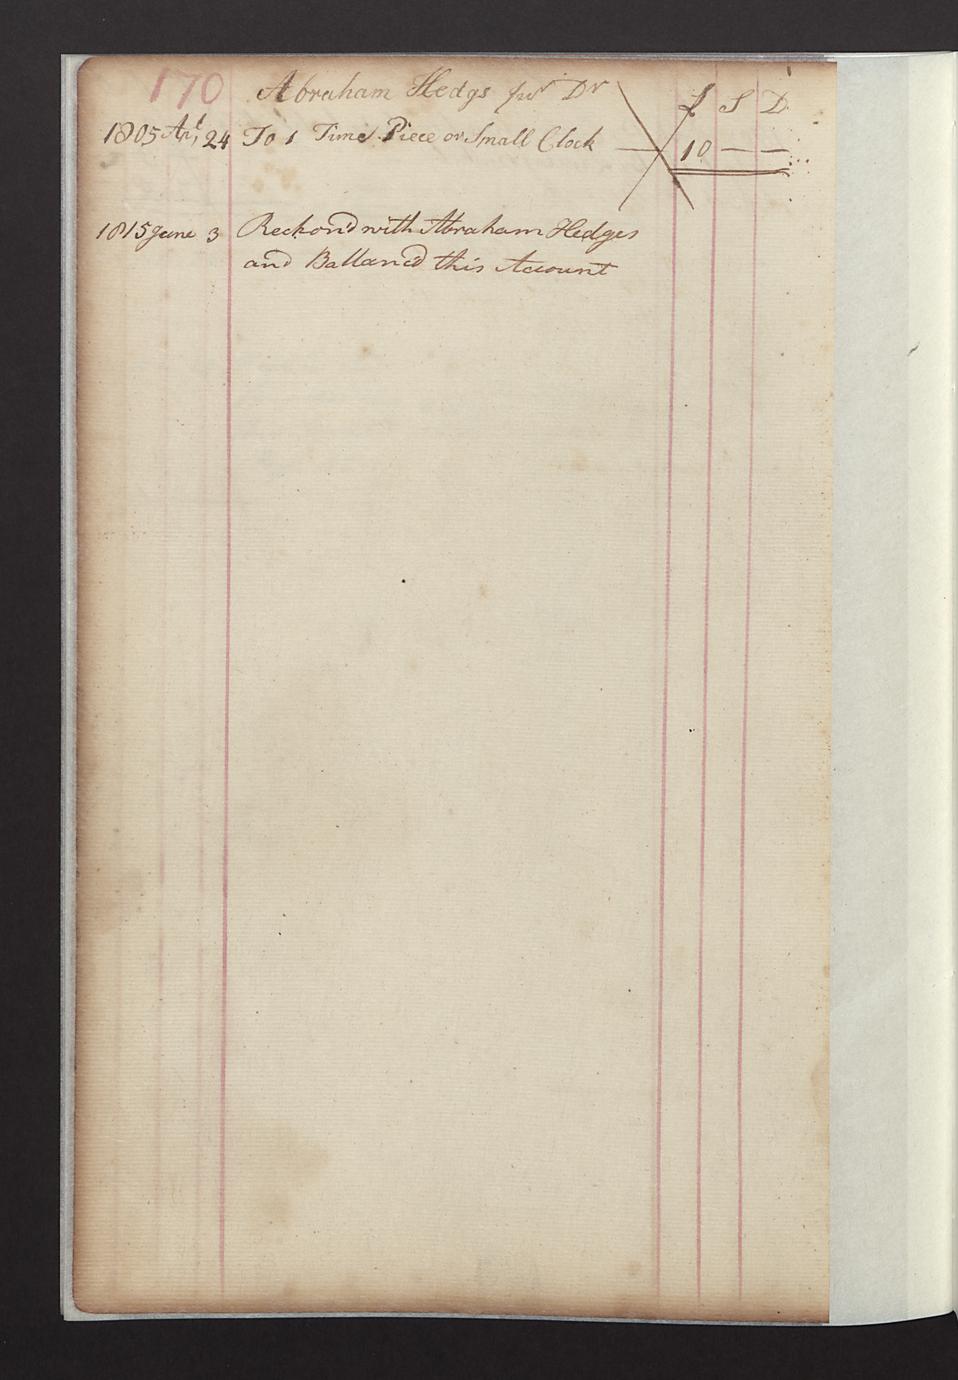 170 Abraham Hedgs junr Dr £ S D
1805 Apl 24 To 1 Time Piece or Small Clock 10 — —
1815 June 3 Reckond with Abraham Hedges
and Ballancd this Account